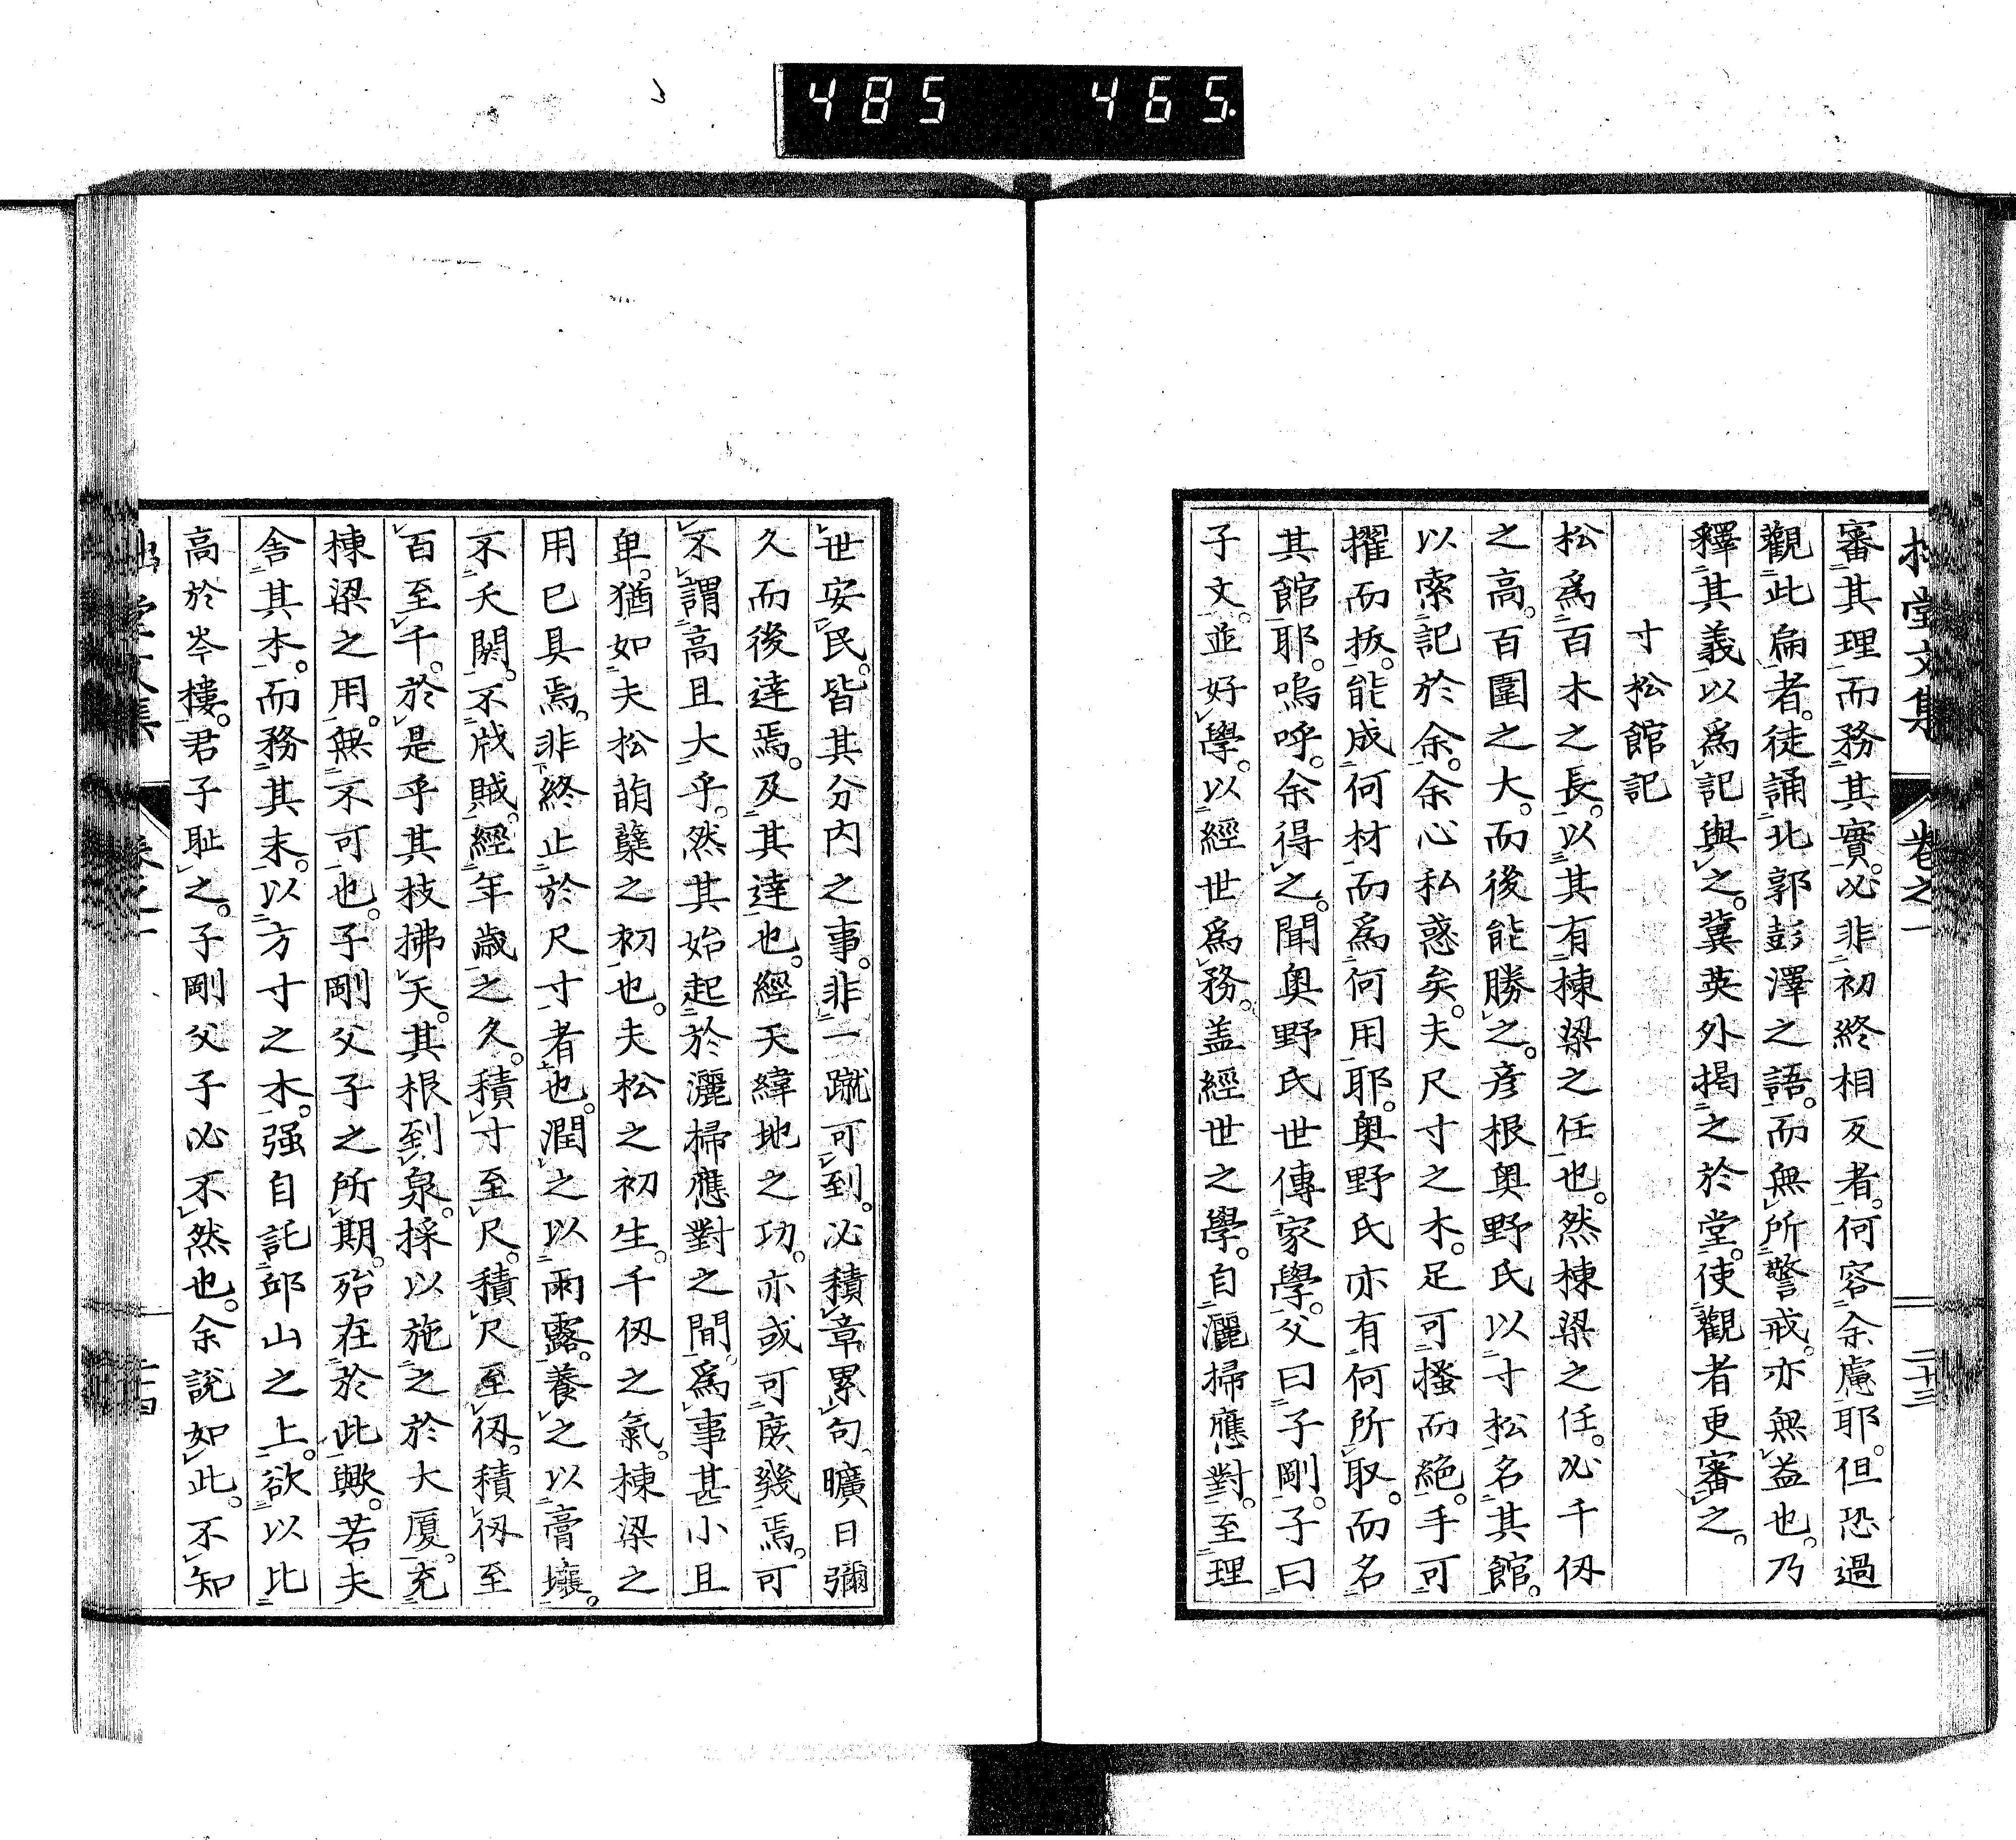 485 465.
審其理而務其實。必非初終相反者。何容余慮耶。但恐過
觀此扁者。徒誦北郭彭澤之語。而無所警戒。亦無益也。乃
釋其義以爲記與之。冀英外揭之於堂。使觀者更審之。
寸松館記
松爲百木之長。以其有棟梁之任也。然棟梁之任。必千仭
之高。百圍之大。而後能勝之。彦根奥野氏以寸松名其館。
以索記於余。余心私惑矣。夫尺寸之木。足可搔而絶。手可
擢而拔。能成何材而爲何用耶。奥野氏亦有何所取。而名
其館耶。嗚呼。余得之。聞奥野氏世傳家學。父曰子剛。子曰
子文。並好學。以經世爲務。盖經世之學。自灑掃應對。至理
世安民。皆其分内之事。非一蹴可到。必積章累句。曠日彌
久而後達焉。及其達也。經天緯地之功。亦或可庻幾焉。可
不謂高且大乎。然其始起於灑掃應對之間。爲事甚小且
卑。猶如夫松萌蘖之初也。夫松之初生。千仭之氣。棟梁之
用已具焉。非終止於尺寸者也。潤之以雨露。養之以膏壤。
不夭閼。不戕賊。經年歳之久。積寸至尺。積尺至仭。積仭至
百至千。於是乎其枝拂天。其根到泉。採以施之於大厦。充
棟梁之用。無不可也。子剛父子之所期。殆在於此歟。若夫
舎其本。而務其末。以方寸之木。强自託邱山之上。欲以比
高於岑樓。君子耻之。子剛父子必不然也。余說如此。不知
堂文集 卷之一 二十三